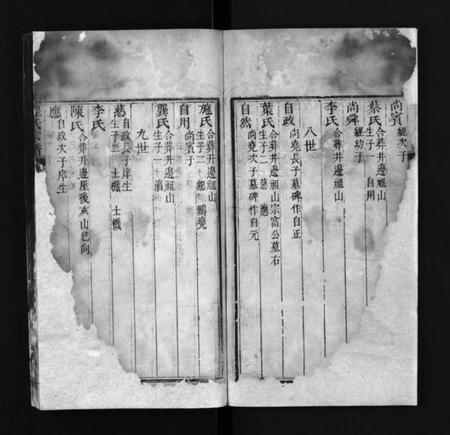 尚賓 經次子
蔡氏 合葬井邊祖山
生子一 自用
尚舜 經幼子
李氏 合葬井邊祖山
八世
自政 尚堯長子墓碑作自正
葉氏 合葬井邊祖山宗富公墓右
生子二 慈 應
自然 尚堯次子墓碑作自元
施氏 合葬井邊祖山
生子二
自用 尚賓子
龔氏 合葬井邊祖山
生子一
九世
慈 自政長子庠生
生子二 士機
李氏
陳氏 合葬井邊屋後亥山巳向
應 自政次子庠生